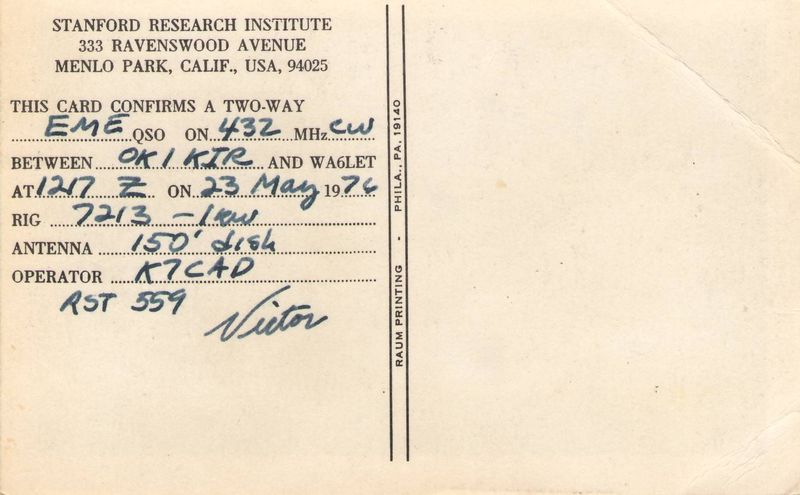 STANFORD RESEARCH INSTITUTE
333 RAVENSWOOD AVENUE
MENLO PARK, CALIF., USA, 94025
THIS CARD CONFIRMS A TWO-WAY
EME QSO ON 432 MHz CW
BETWEEN OK1KIR AND WA6LET
AT 1217 Z ON 23 May 1976
RIG 7213 - 1kw
ANTENNA 150' dish
OPERATOR K7CAD
RST 559
Victor
RAUM PRINTING - PHILA., PA. 19140